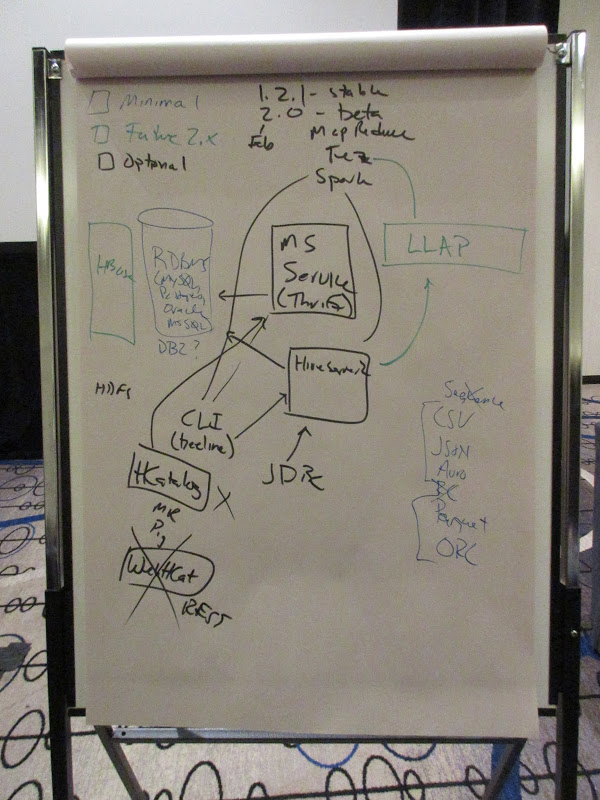 Minimal
Future 2.x
Optional
1.2.1 - stable
2.0 - beta
Feb
MapReduce
Tez
Spark
HBase
RDBMS
(MySQL
Postgres
Oracle
MSSQL
DB2?
MS
Service
(Thrift)
LLAP
HiveServer2
HDFS
CLI
(beeline)
JDBC
HCatalog
X
MR
Pig
WebHCat
REST
Sequence
CSV
JSON
Avro
RC
Parquet
ORC